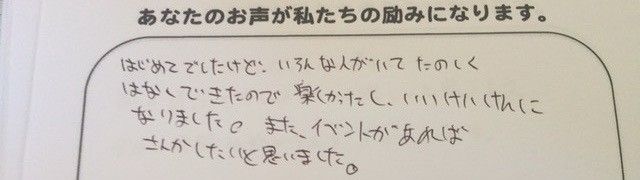 あなたのお声が私たちの励みになります。
はじめてでしたけど、いろんな人がいて たのしく
はなしできたので 楽しかたし、いいけいけんに
なりました。また、イベントがあれば
さんかしたいと思いました。